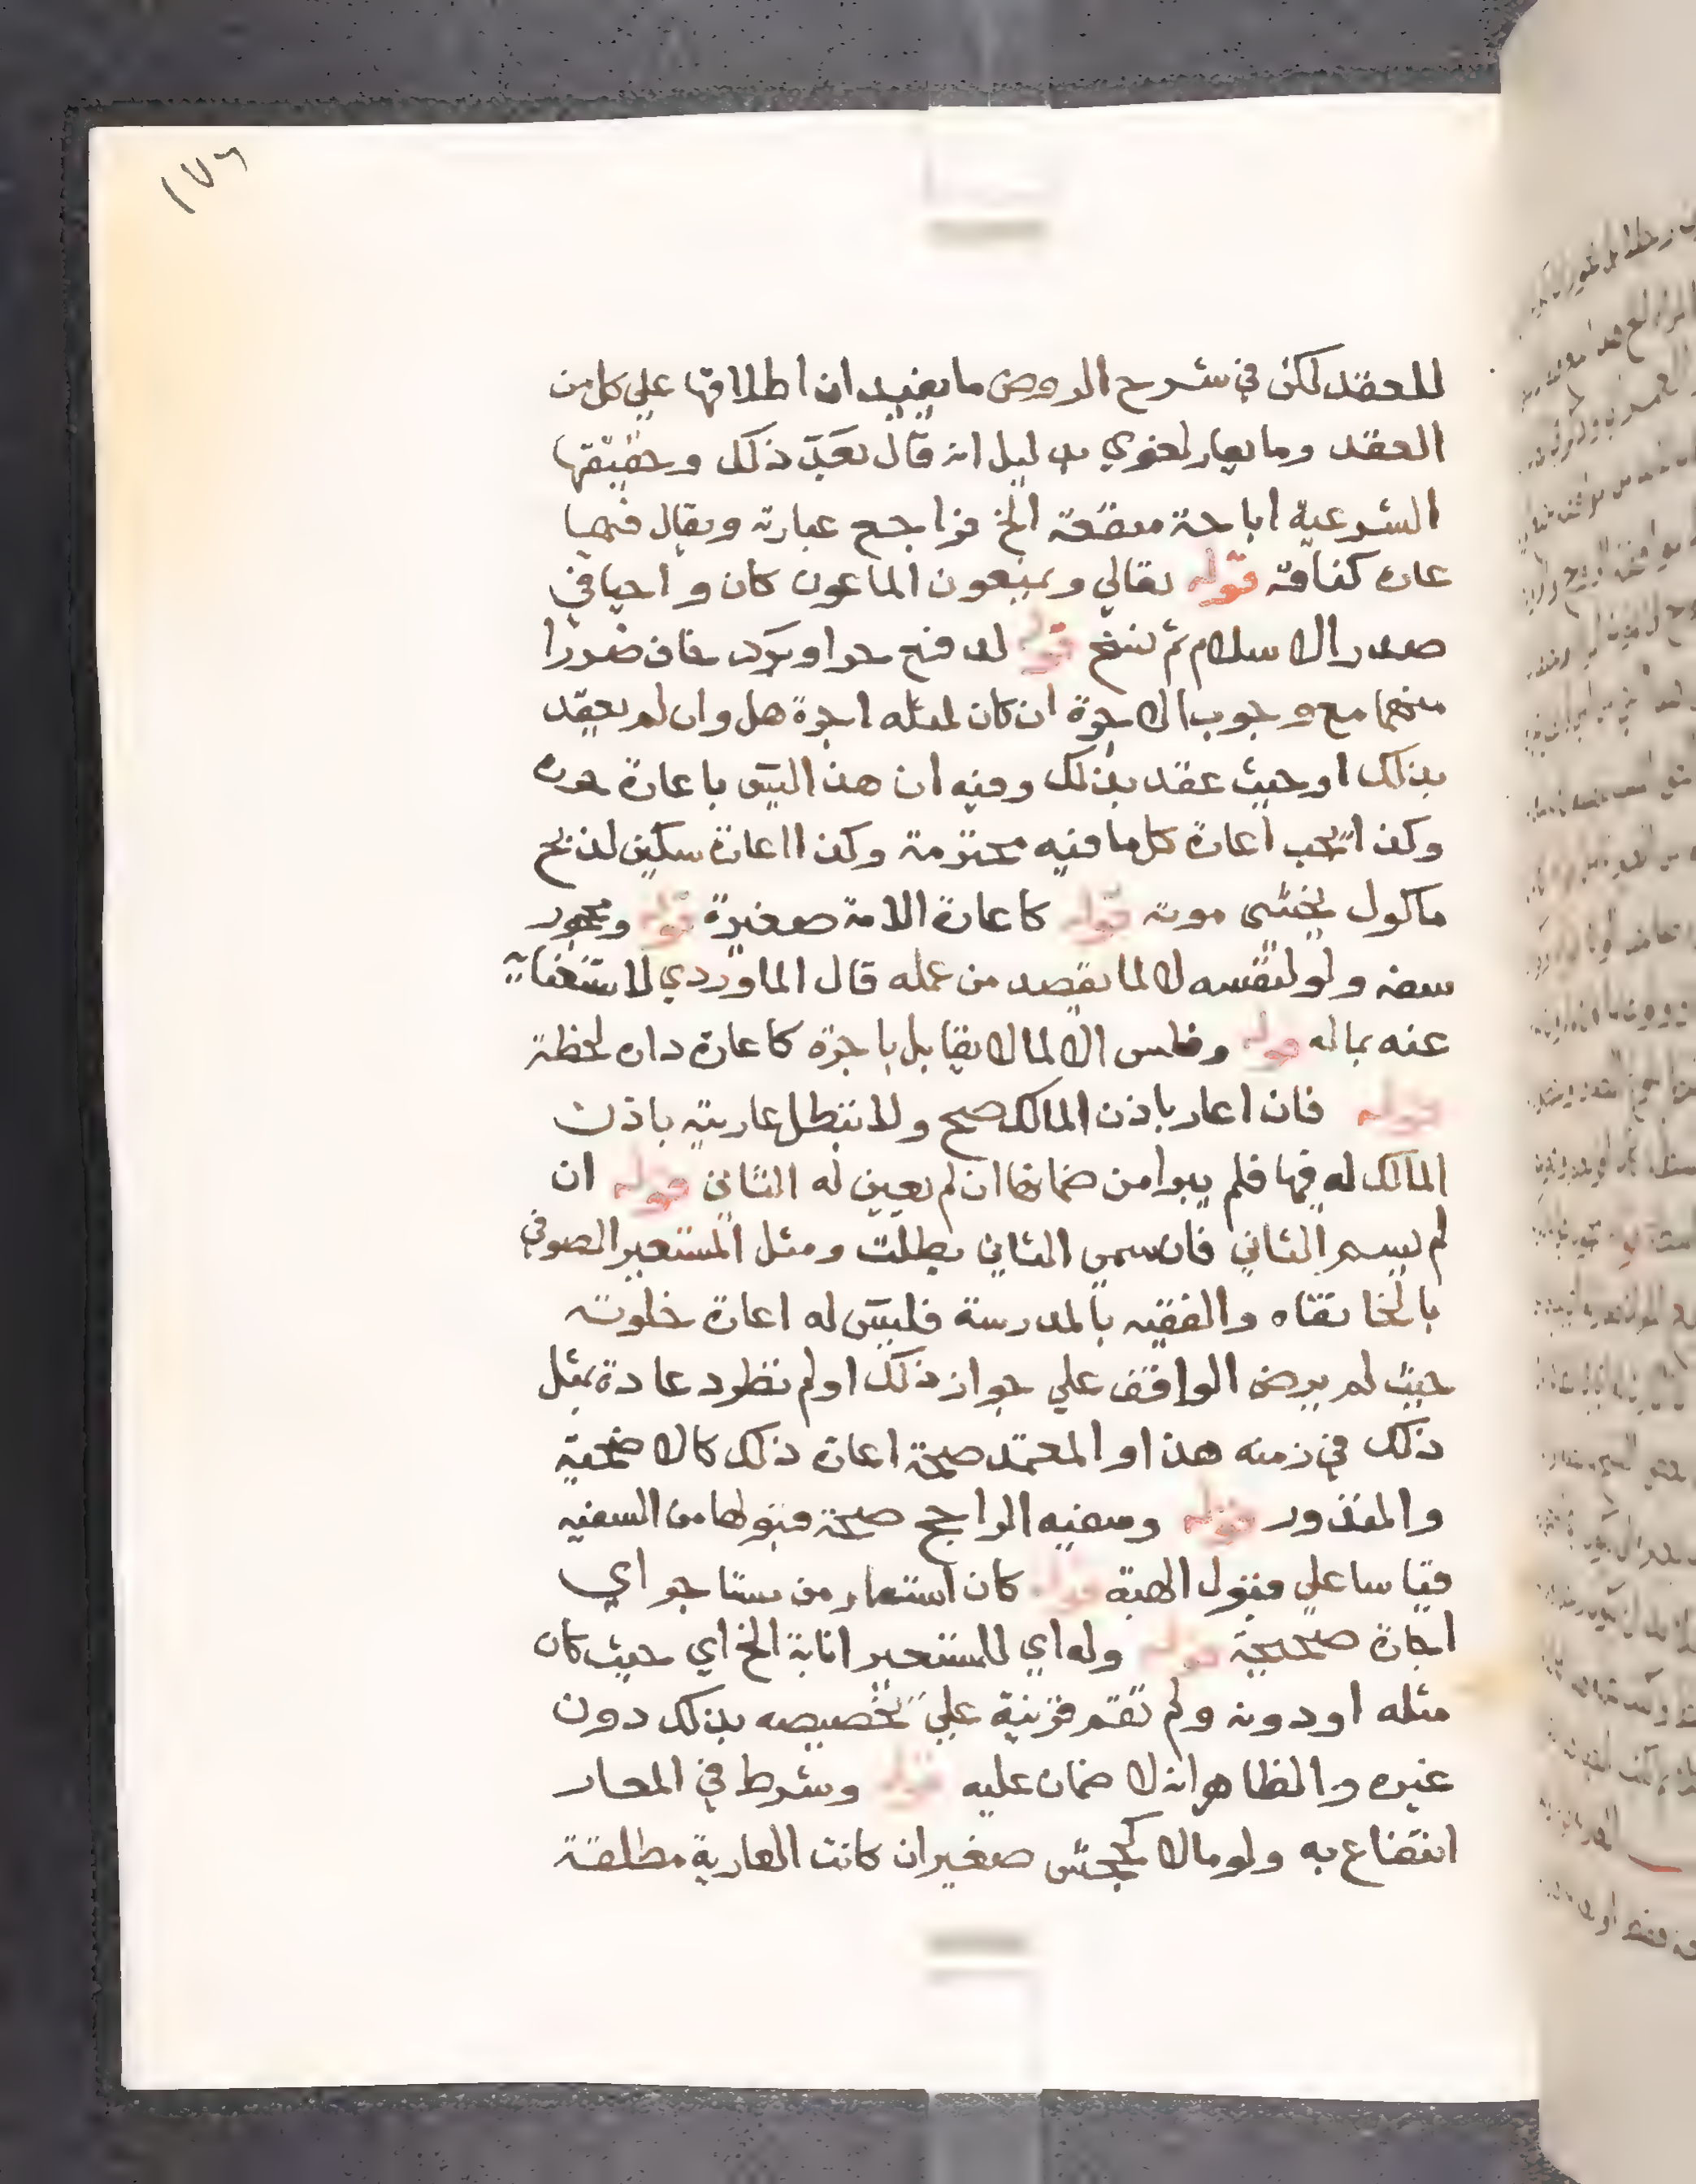 ١٧٦
للعقد لكن في شرح الروض ما يفيد ان اطلاقها علي كل من
العقد وما يعار لغوي بدليل انه قال بعد ذلك وحقيقتها
الشرعية اباحة منفعة الخ فراجع عبارته ويقال فيها
عارة كناقة قوله تعالي ويمنعون الماعون كان واجبا في
صدر الاسلام ثم نسخ قوله لدفع حر او برد خاف ضررا
منهما مع وجوب الاجرة ان كان لمثله اجرة هل وان لم يعقد
بذلك او حيث عقد بذلك وفيه ان هذا ليس باعارة حوره
وكذا تجب اعارة كل ما فيه محترمة وكذا اعارة سكين لذبح
ماكول يخشى موته قوله كاعارة الامة صغيرة قوله ومحجور
سفه ولو لنفسه لا لما يقصد من عمله قال الماوردي لاستغنائه
عنه بماله قوله وفلس الا لما لا يقابل باجرة كاعارة داره لحظة
قوله فان اعار باذن المالك صح ولا تبطل عاريته باذن
المالك له فيها فلم يبرا من ضمانها ان لم يعين له الثاني قوله ان
لم يسم الثاني فان سمي الثاني بطلت ومثل المستعير الصوفي
بالخانقاه والفقيه بالمدرسة فليس له اعارة خلوته
حيث لم يرض الواقف علي جواز ذلك او لم تطرد عادة بمثل
ذلك في زمنه هذا والمعتمد صحة اعارة ذلك كالاضحية
والمنذور قوله وسفيه الراجح صحة قبولها من السفيه
قياسا علي قبول الهبة قوله كان استعار من مستاجر اي
اجارة صحيحة قوله وله اي للمستعير انابة الخ اي حيث كان
مثله او دونه ولم تقم قرينة علي تخصيصه بذلك دون
غيره والظاهر انه لا ضمان عليه قوله وشرط في المعار
انتفاع به ولو مالا كجحش صغير ان كانت العارية مطلقة